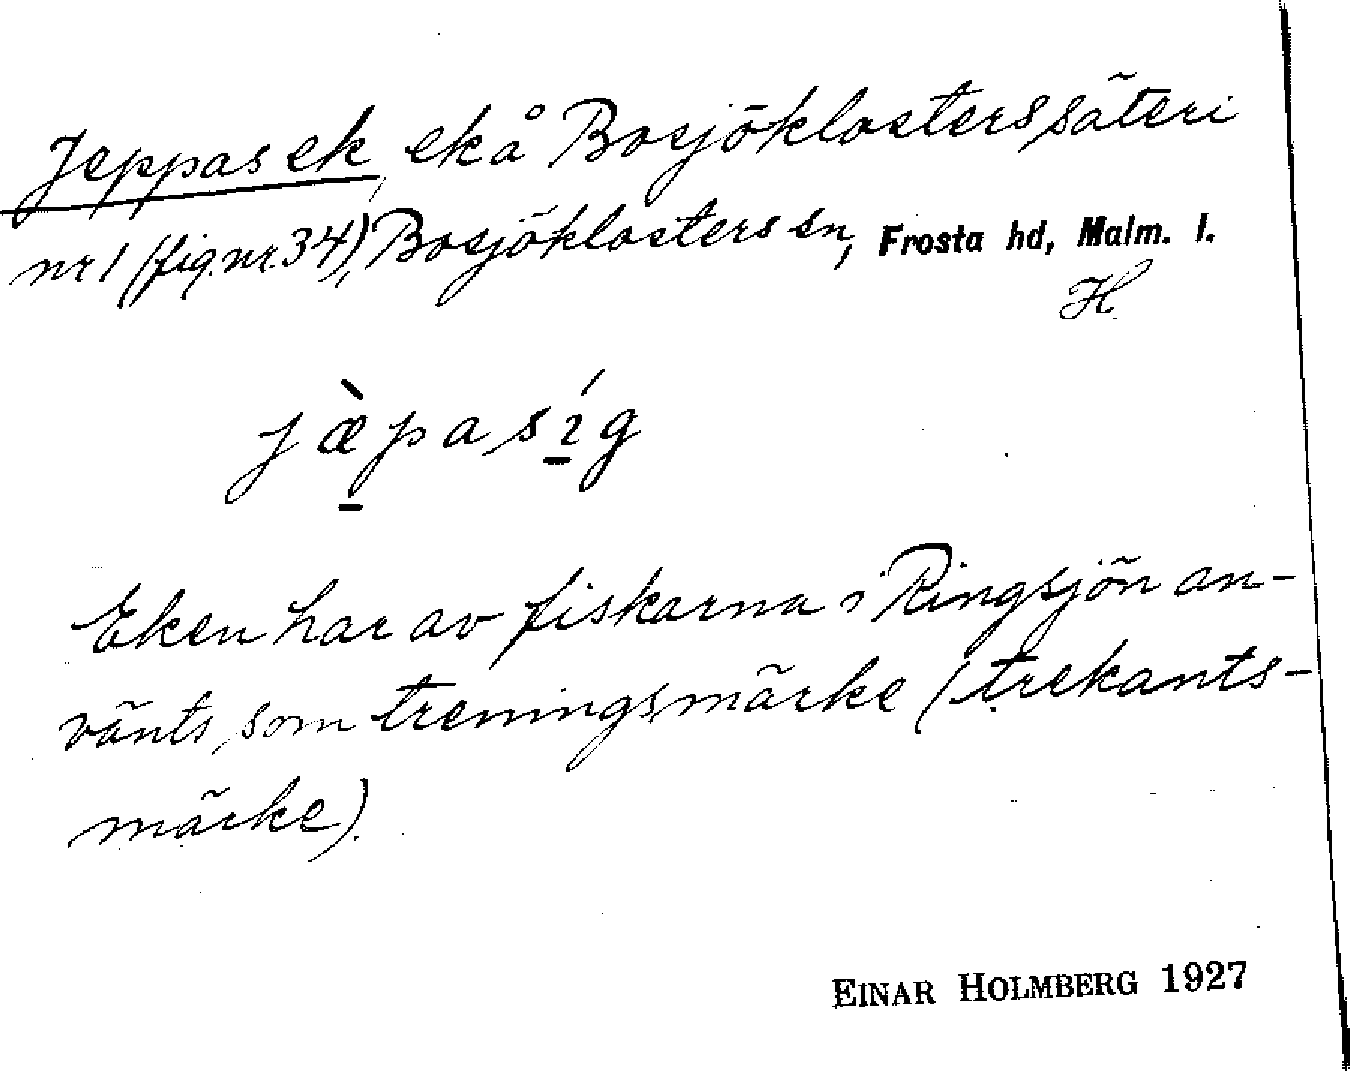 Jeppas ek, ek å Bosjöklosters säteri
nr 1 (fig. nr. 34), Bosjöklosters sn, Frosta hd, Malm. l.
H.
jæ̠̀pasí̠g
Eken har av fiskarna i Ringsjön an-
vänts som treningsmärke (trekants-
märke).
EINAR HOLMBERG 1927